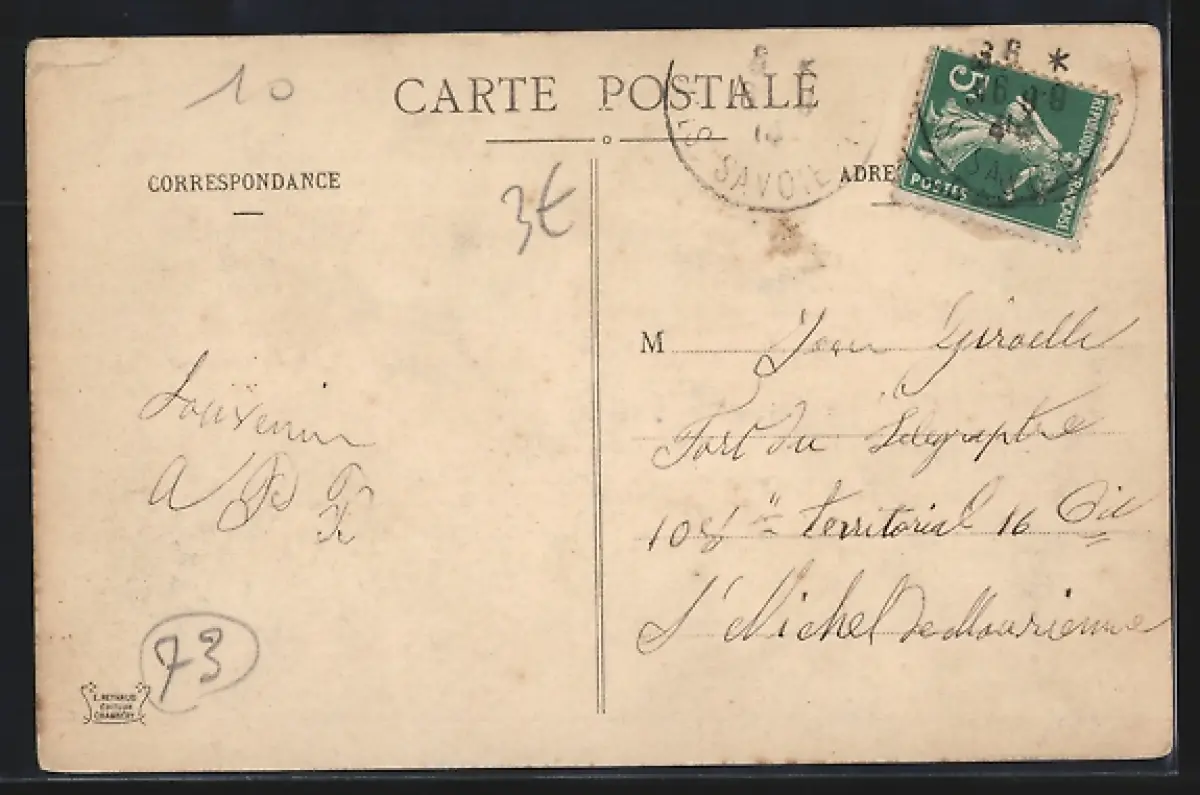 10
CARTE POSTALE
CORRESPONDANCE
3€
ADRE
5
POSTES
FRANÇAISE
SAVOIE
M Jean Giraelle
Fort du Télégraphe
108 è territorial 16 Cie
St Michel de Maurienne
Souvenir
73
E. REYNAUD
ÉDITEUR
CHAMBÉRY